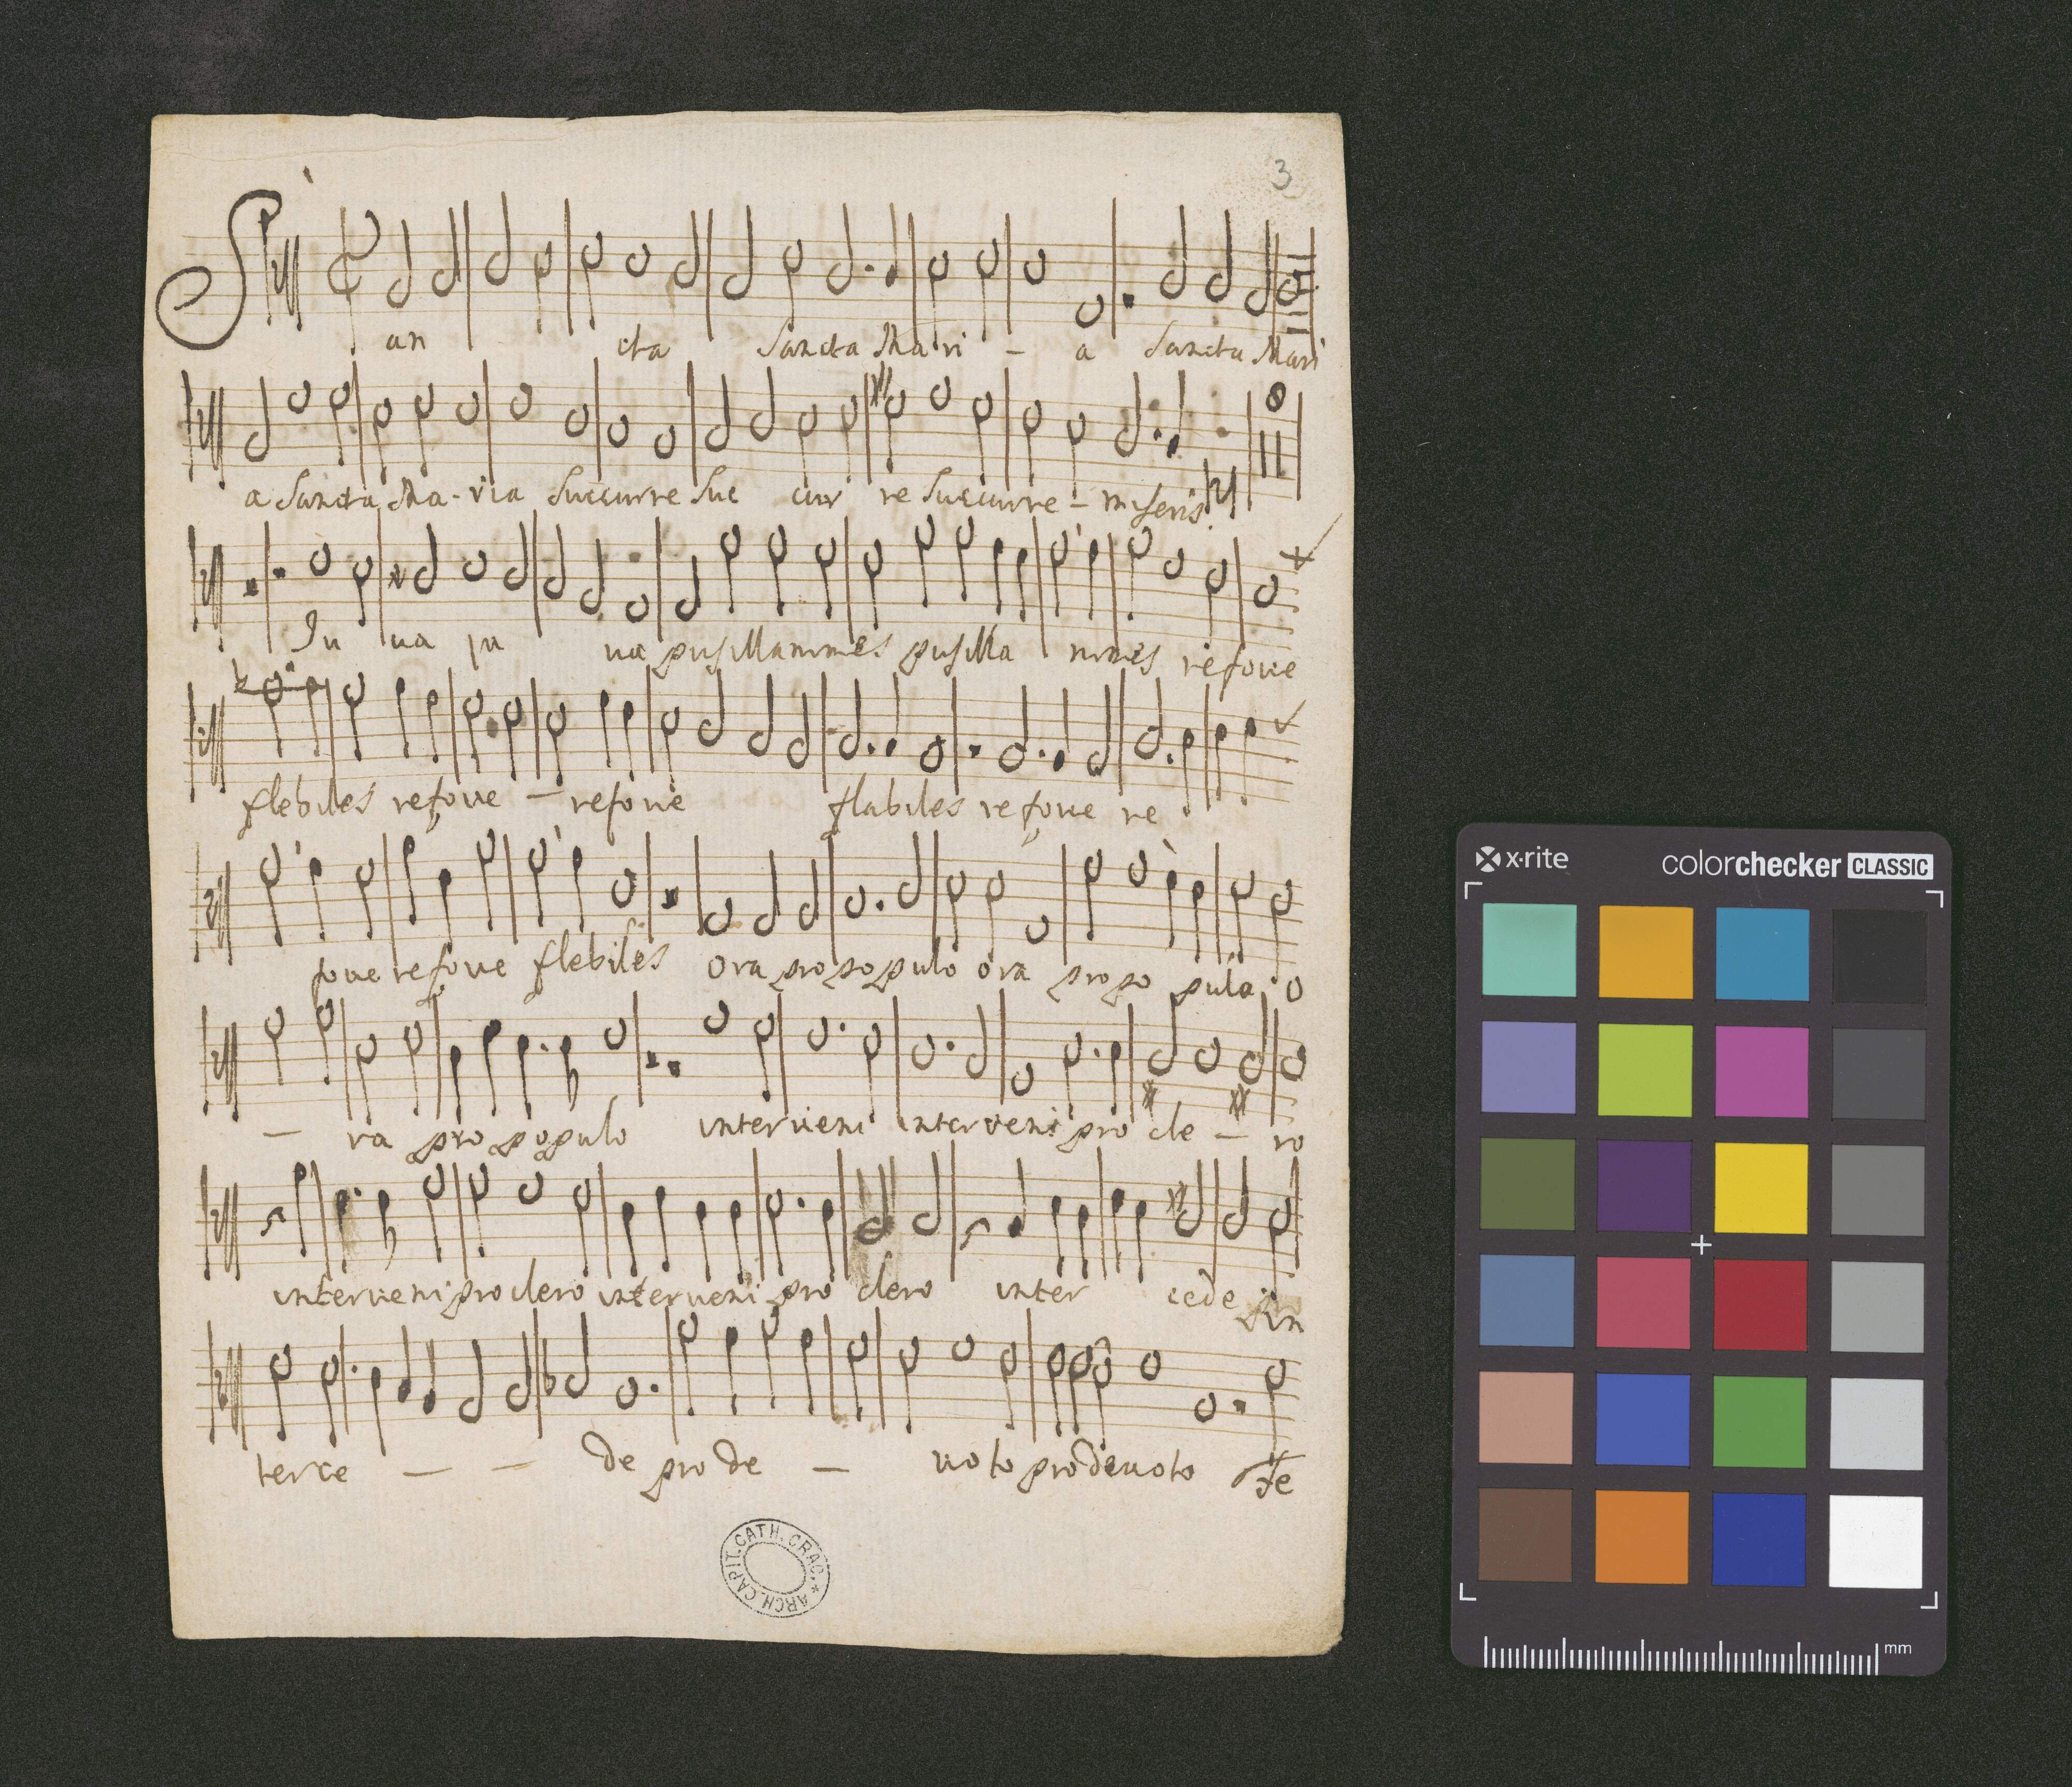 3
San - cta Sancta Mari - a Sancta Mari
a Sancta Ma-ria Succurre Suc cur re Succurre - miseris
Iu ua iu ua pusillanimes pusilla nimes refoue
flebiles refoue - refoue flabiles refoue re
foue refoue flebiles Ora pro populo ora pro po pulo o
- ra pro populo interueni interueni pro cle - ro
interueni pro clero interueni pro clero inter cede in
terce - - de pro de - uoto pro deuoto Fe
ARCH. CAPIT. CATH. CRAC. *
x-rite colorchecker CLASSIC
mm